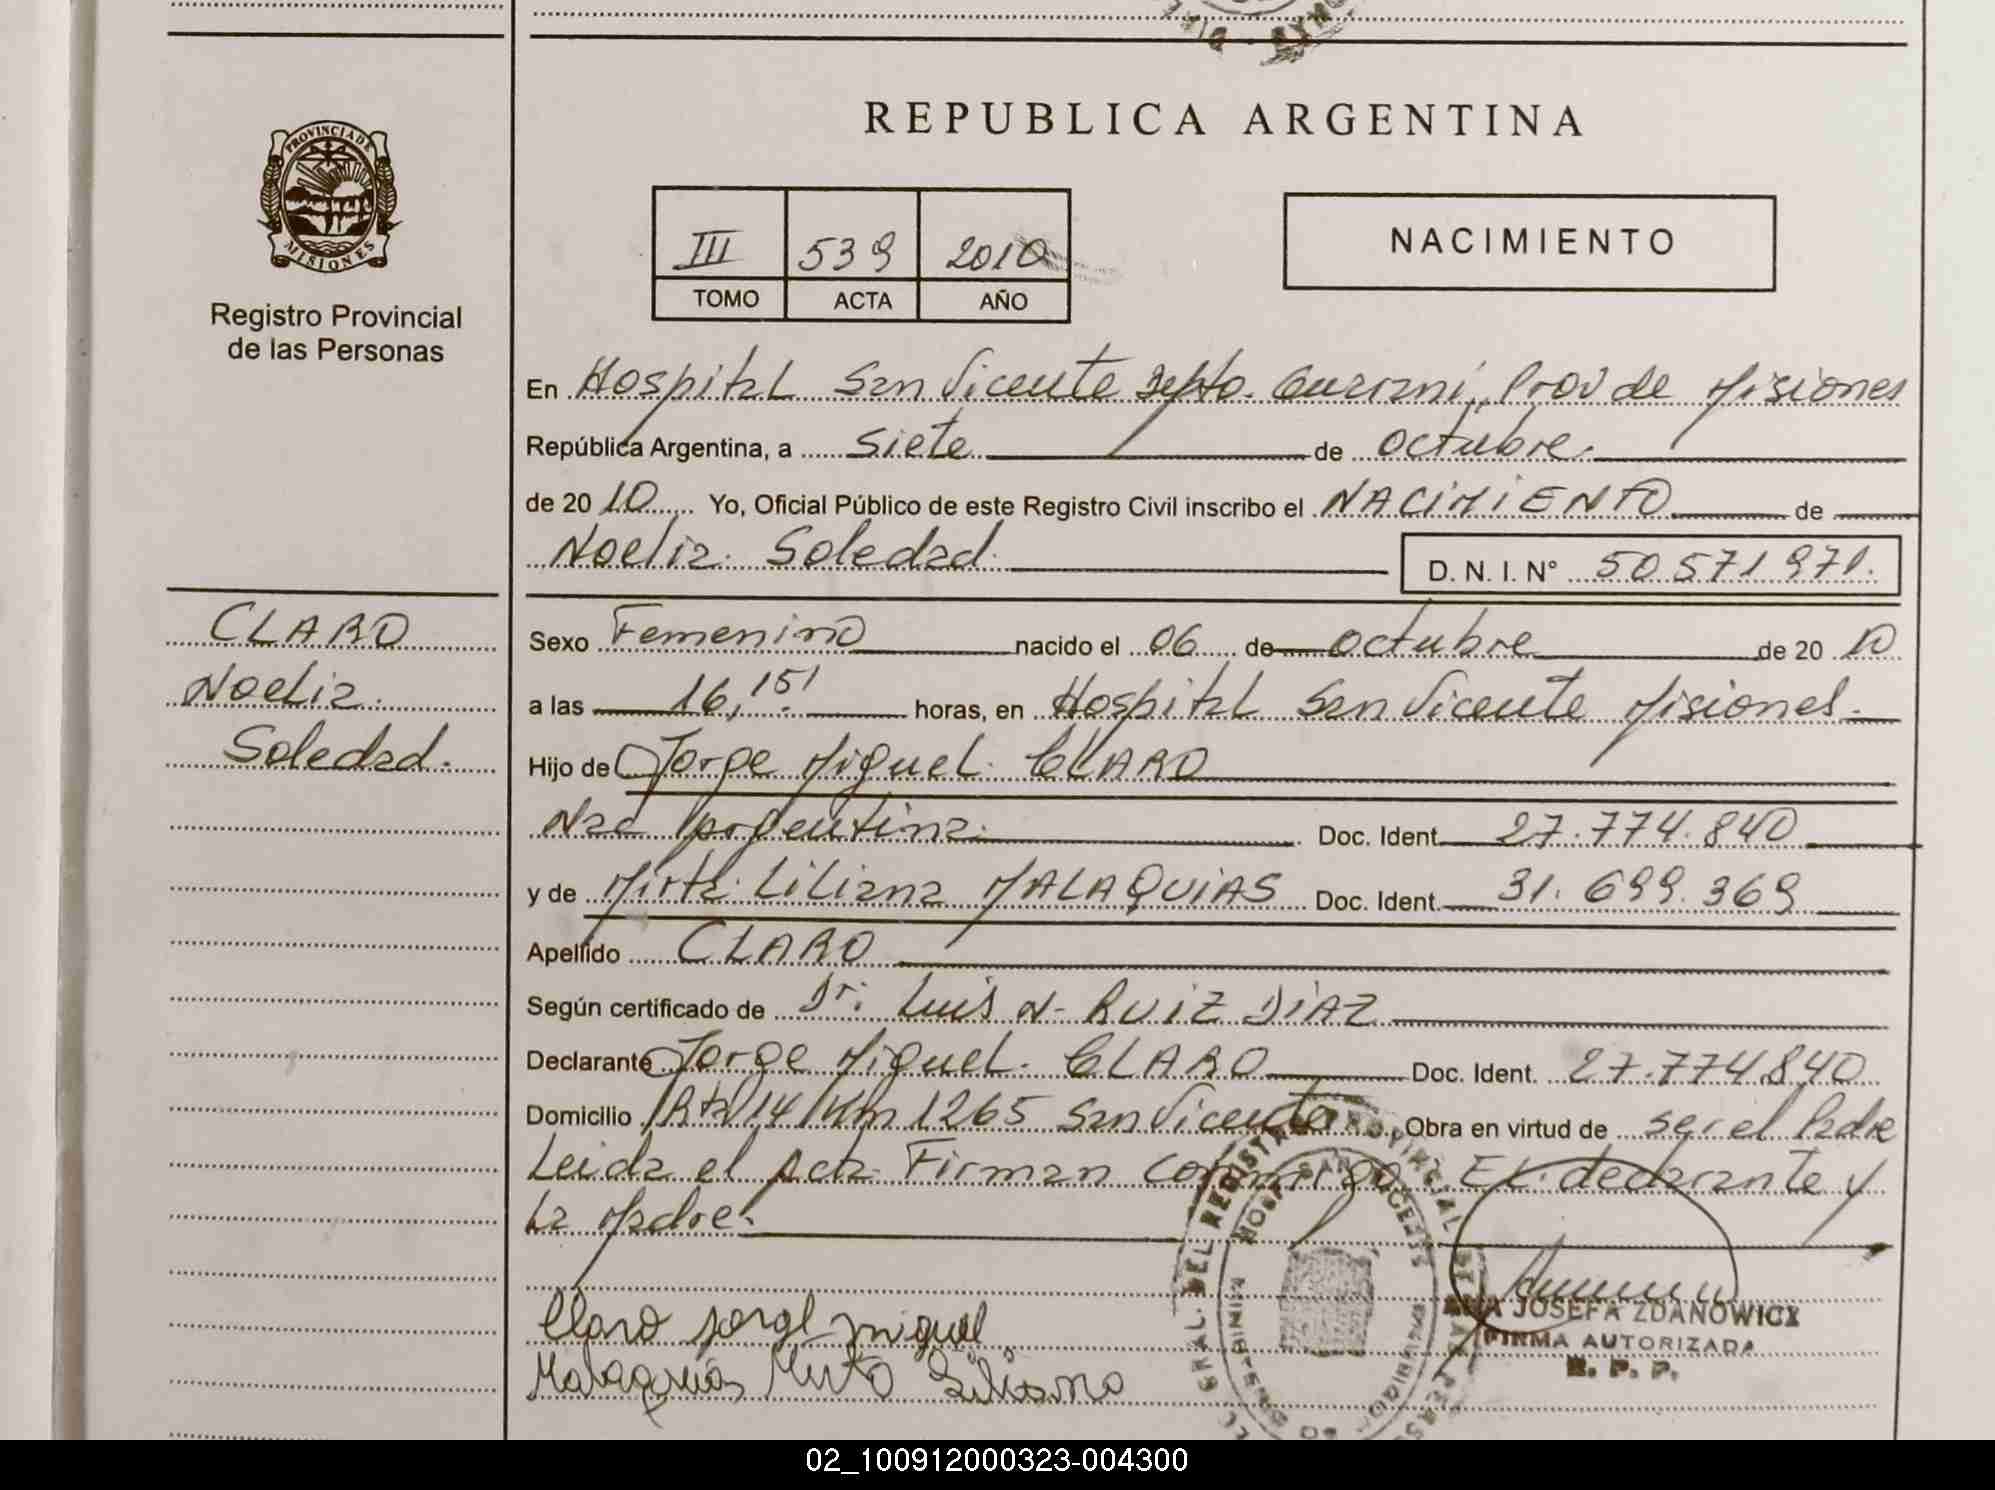 REPUBLICA ARGENTINA
PROVINCIA DE
MISIONES
Registro Provincial
de las Personas
III 539 2010
TOMO ACTA AÑO
NACIMIENTO
En Hospital San Vicente Depto. Guarani, Prov de Misiones
República Argentina, a siete de octubre.
de 20 10 Yo, Oficial Público de este Registro Civil inscribo el NACIMIENTO de
Noelia Soledad D. N. I. N° 50.571.971.
CLARO
Noelia
Soledad.
Sexo Femenino nacido el 06 de octubre de 20 10
a las 16,15' horas, en Hospital San Vicente Misiones.
Hijo de Jorge Miguel CLARO
Nac Argentina. Doc. Ident. 27.774.840
y de Mirta Liliana MALAQUIAS Doc. Ident. 31.699.369
Apellido CLARO
Según certificado de Dr. Luis N. RUIZ DIAZ
Declarante Jorge Miguel CLARO Doc. Ident. 27.774.840
Domicilio Rta 14 Km 1265 San Vicente Obra en virtud de ser el Padre
Leida el Acta Firman conmigo El declarante y
La Madre.
Claro Jorge miguel
Malaquias Mirta Liliana
ANA JOSEFA ZDANOWICZ
FIRMA AUTORIZADA
R. P. P.
02_100912000323-004300